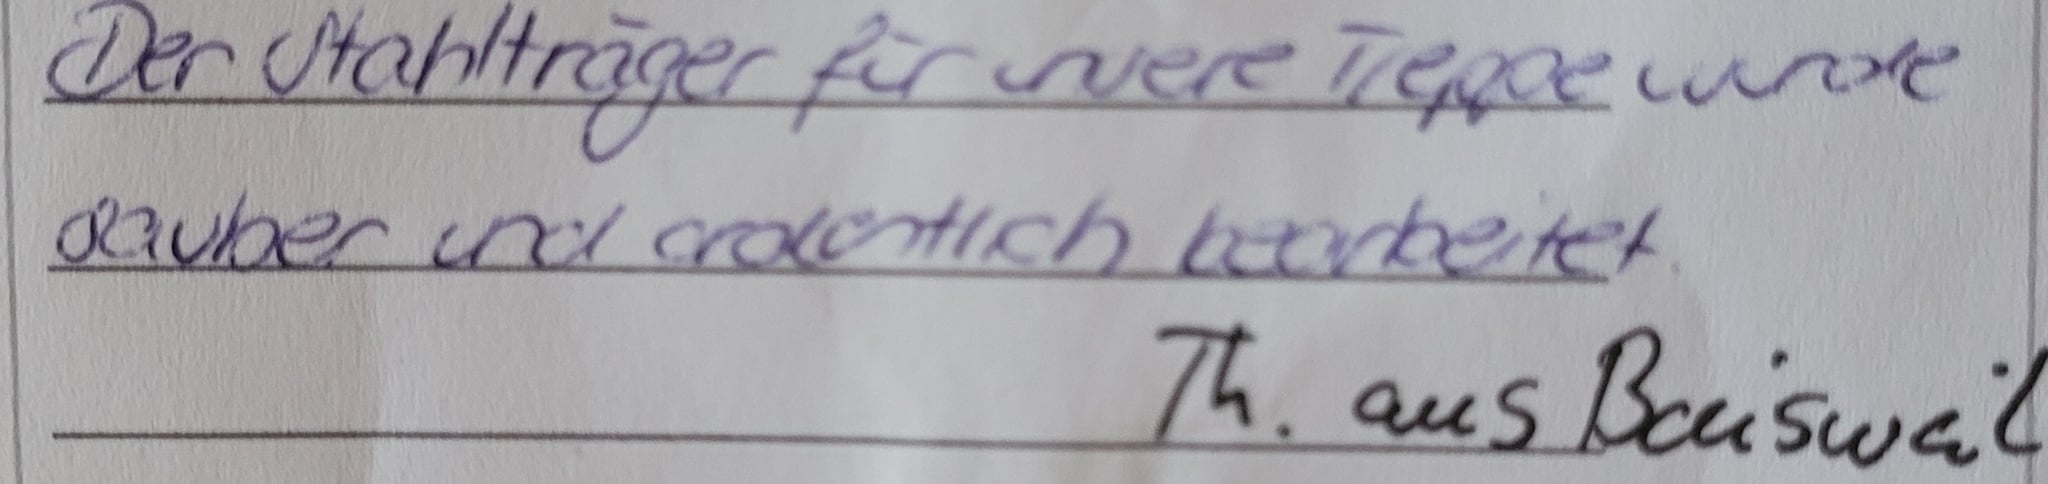 Der Stahlträger für unsere Treppe wurde
sauber und ordentlich bearbeitet.
Th. aus Baisweil